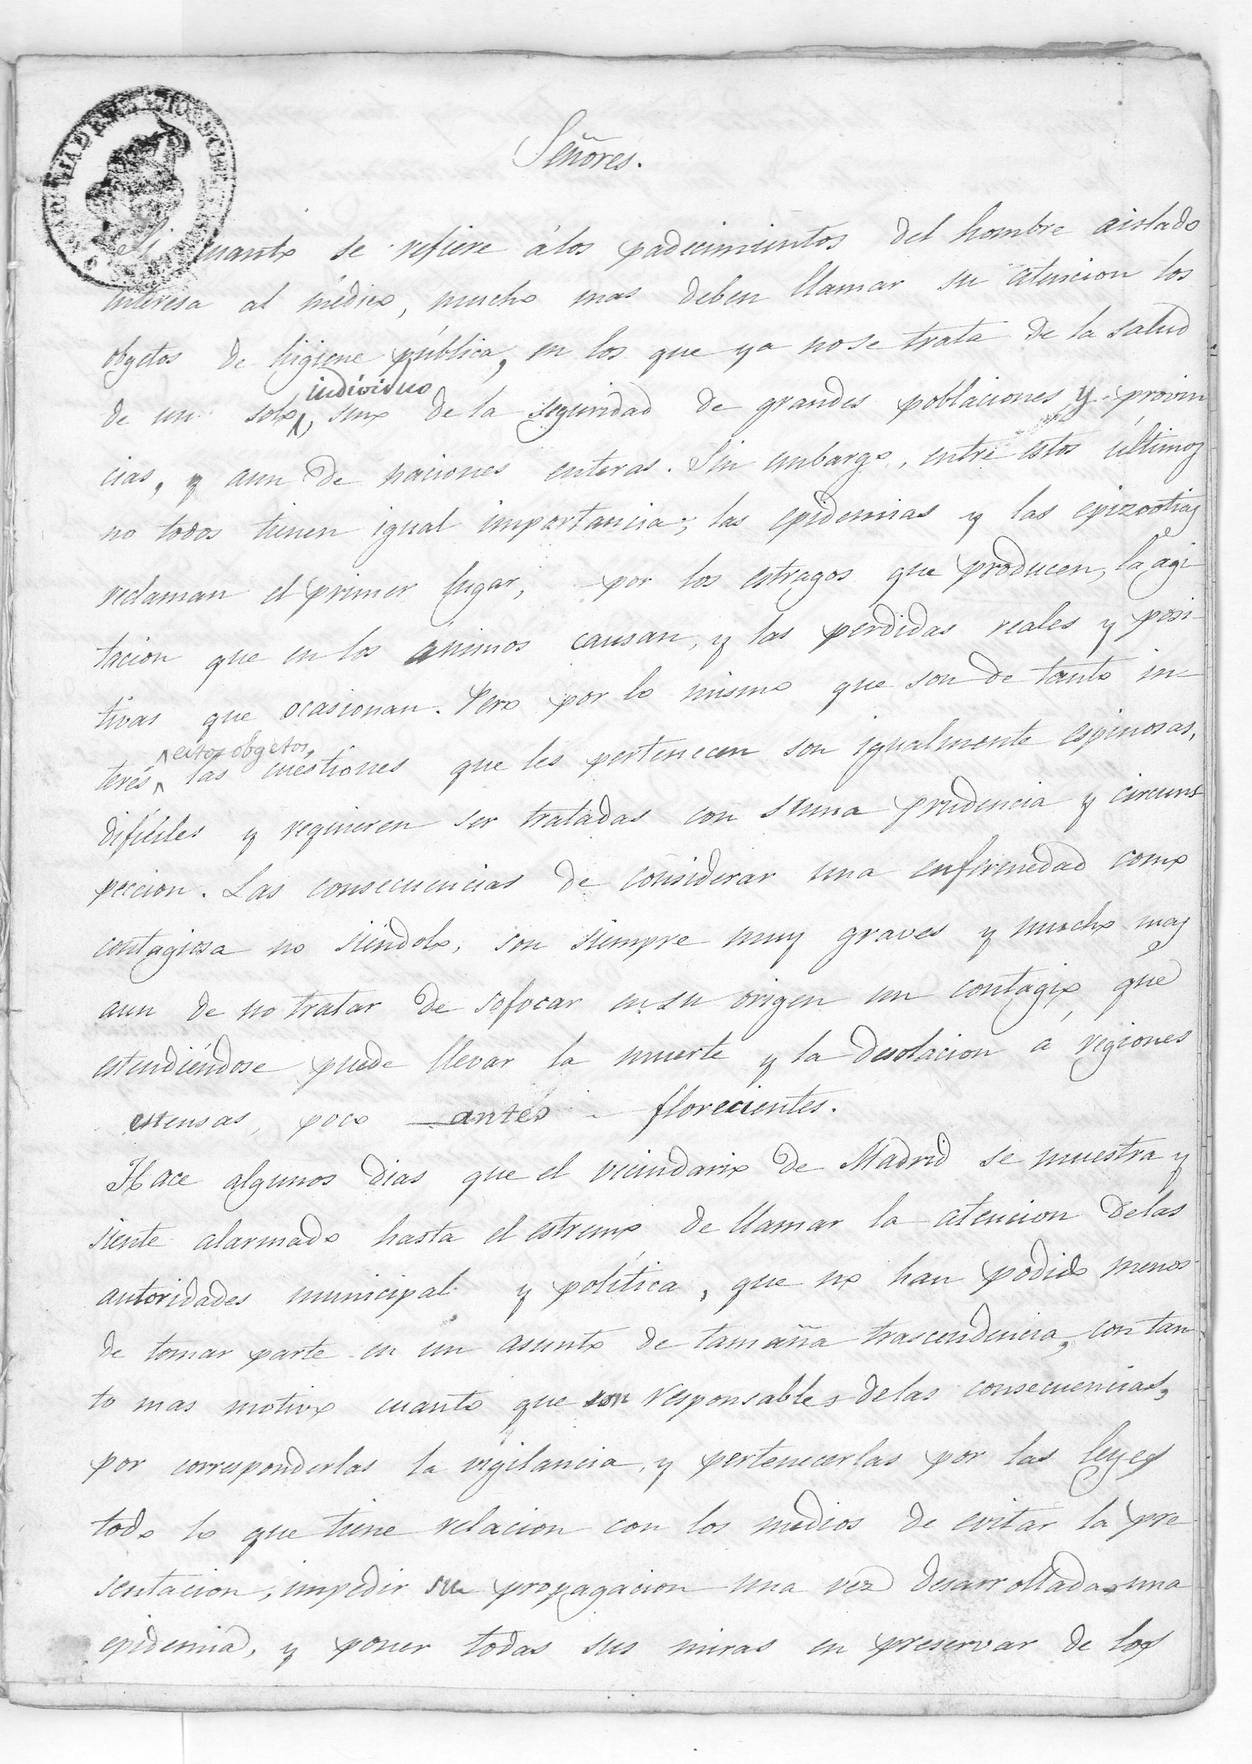 Señores.
Si cuanto se refiere álos padecimientos del hombre aislado
interesa al médico, mucho mas deben llamar su atencion los
obgetos de higiene pública, en los que ya nose trata de la salud
individuo
de un solo, sino de la seguridad de grandes poblaciones y provin
cias, y aun de naciones enteras. Sin embargo, entre estos últimos
no todos tienen igual importancia; las epidemias y las epizootias
reclaman el primer lugar, por los estragos que producen, la agi
tacion que en los ánimos causan, y las pérdidas reales y posi-
tivas que ocasionan. Pero por lo mismo que son de tanto in-
estos obgetos,
terés las cuestiones que les pertenecen son igualmente espinosas,
difíciles y requieren ser tratadas con suma prudencia y circuns
peccion. Las consecuencias de considerar una enfermedad como
contagiosa no siéndolo, son siempre muy graves y mucho mas
aun de no tratar de sofocar en su origen un contagio, que
estendiéndose puede llevar la muerte y la desolacion á regiones
estensas, poco antes florecientes.
Hace algunos dias que el vecindario de Madrid se muestra y
siente alarmado hasta el estremo de llamar la atencion delas
autoridades municipal y política, que no han podido menos
de tomar parte en un asunto de tamaña trascendencia, con tan
to mas motivo cuanto que son responsables delas consecuencias,
por corresponderlas la vigilancia, y pertenecerlas por las leyes
todo lo que tiene relacion con los medios de evitar la pre
sentacion, impedir su propagacion una vez desarrollada una
epidemia, y poner todas sus miras en preservar de los